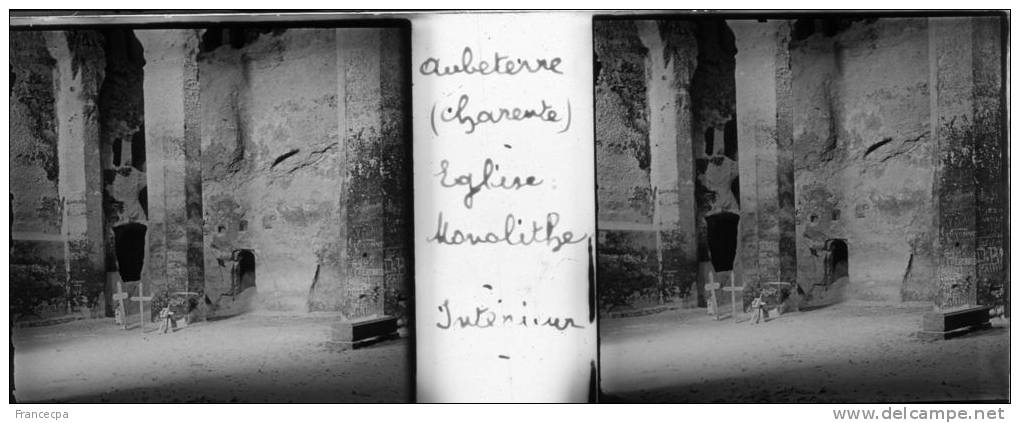 Aubeterre
(Charente)
-
Eglise
Monolithe
-
Intérieur
-
Francecpa
www.delcampe.net